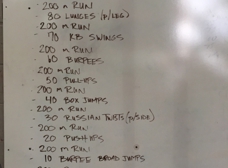 - 200 m RUN
- 80 LUNGES (P/LEG)
- 200 m RUN
- 70 KB SWINGS
- 200 m RUN
- 60 BURPEES
- 200 m RUN
- 50 PULL-UPS
- 200 m RUN
- 40 BOX JUMPS
- 200 m RUN
- 30 RUSSIAN TWISTS (P/SIDE)
- 200 m RUN
- 20 PUSH-UPS
- 200 m RUN
- 10 BURPEE BROAD JUMPS